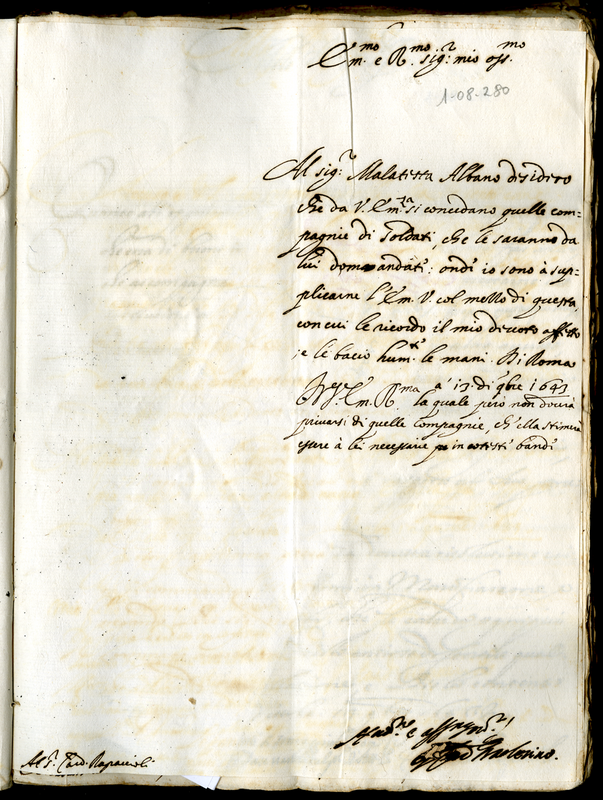 Em.mo e R.mo sig.r mio oss.mo
1-08-280
Al sig.r Malatesta Albano desidero
che da V. Em.za si concedano quelle com-
pagnie di soldati, che le saranno da
lui domandati: ond' io sono à sup-
plicarne l'Em. V. col mezzo di questa,
con cui le ricordo il mio devoto affetto
e le bacio hum.te le mani. Di Roma
Em. R.ma a' 13. di 9bre 1643
la quale però non dovrà
privarsi di quelle compagnie, ch' ella stimerà
essere à lei necessarie in cotesti bandi
Al S.r Card. Rapaccioli